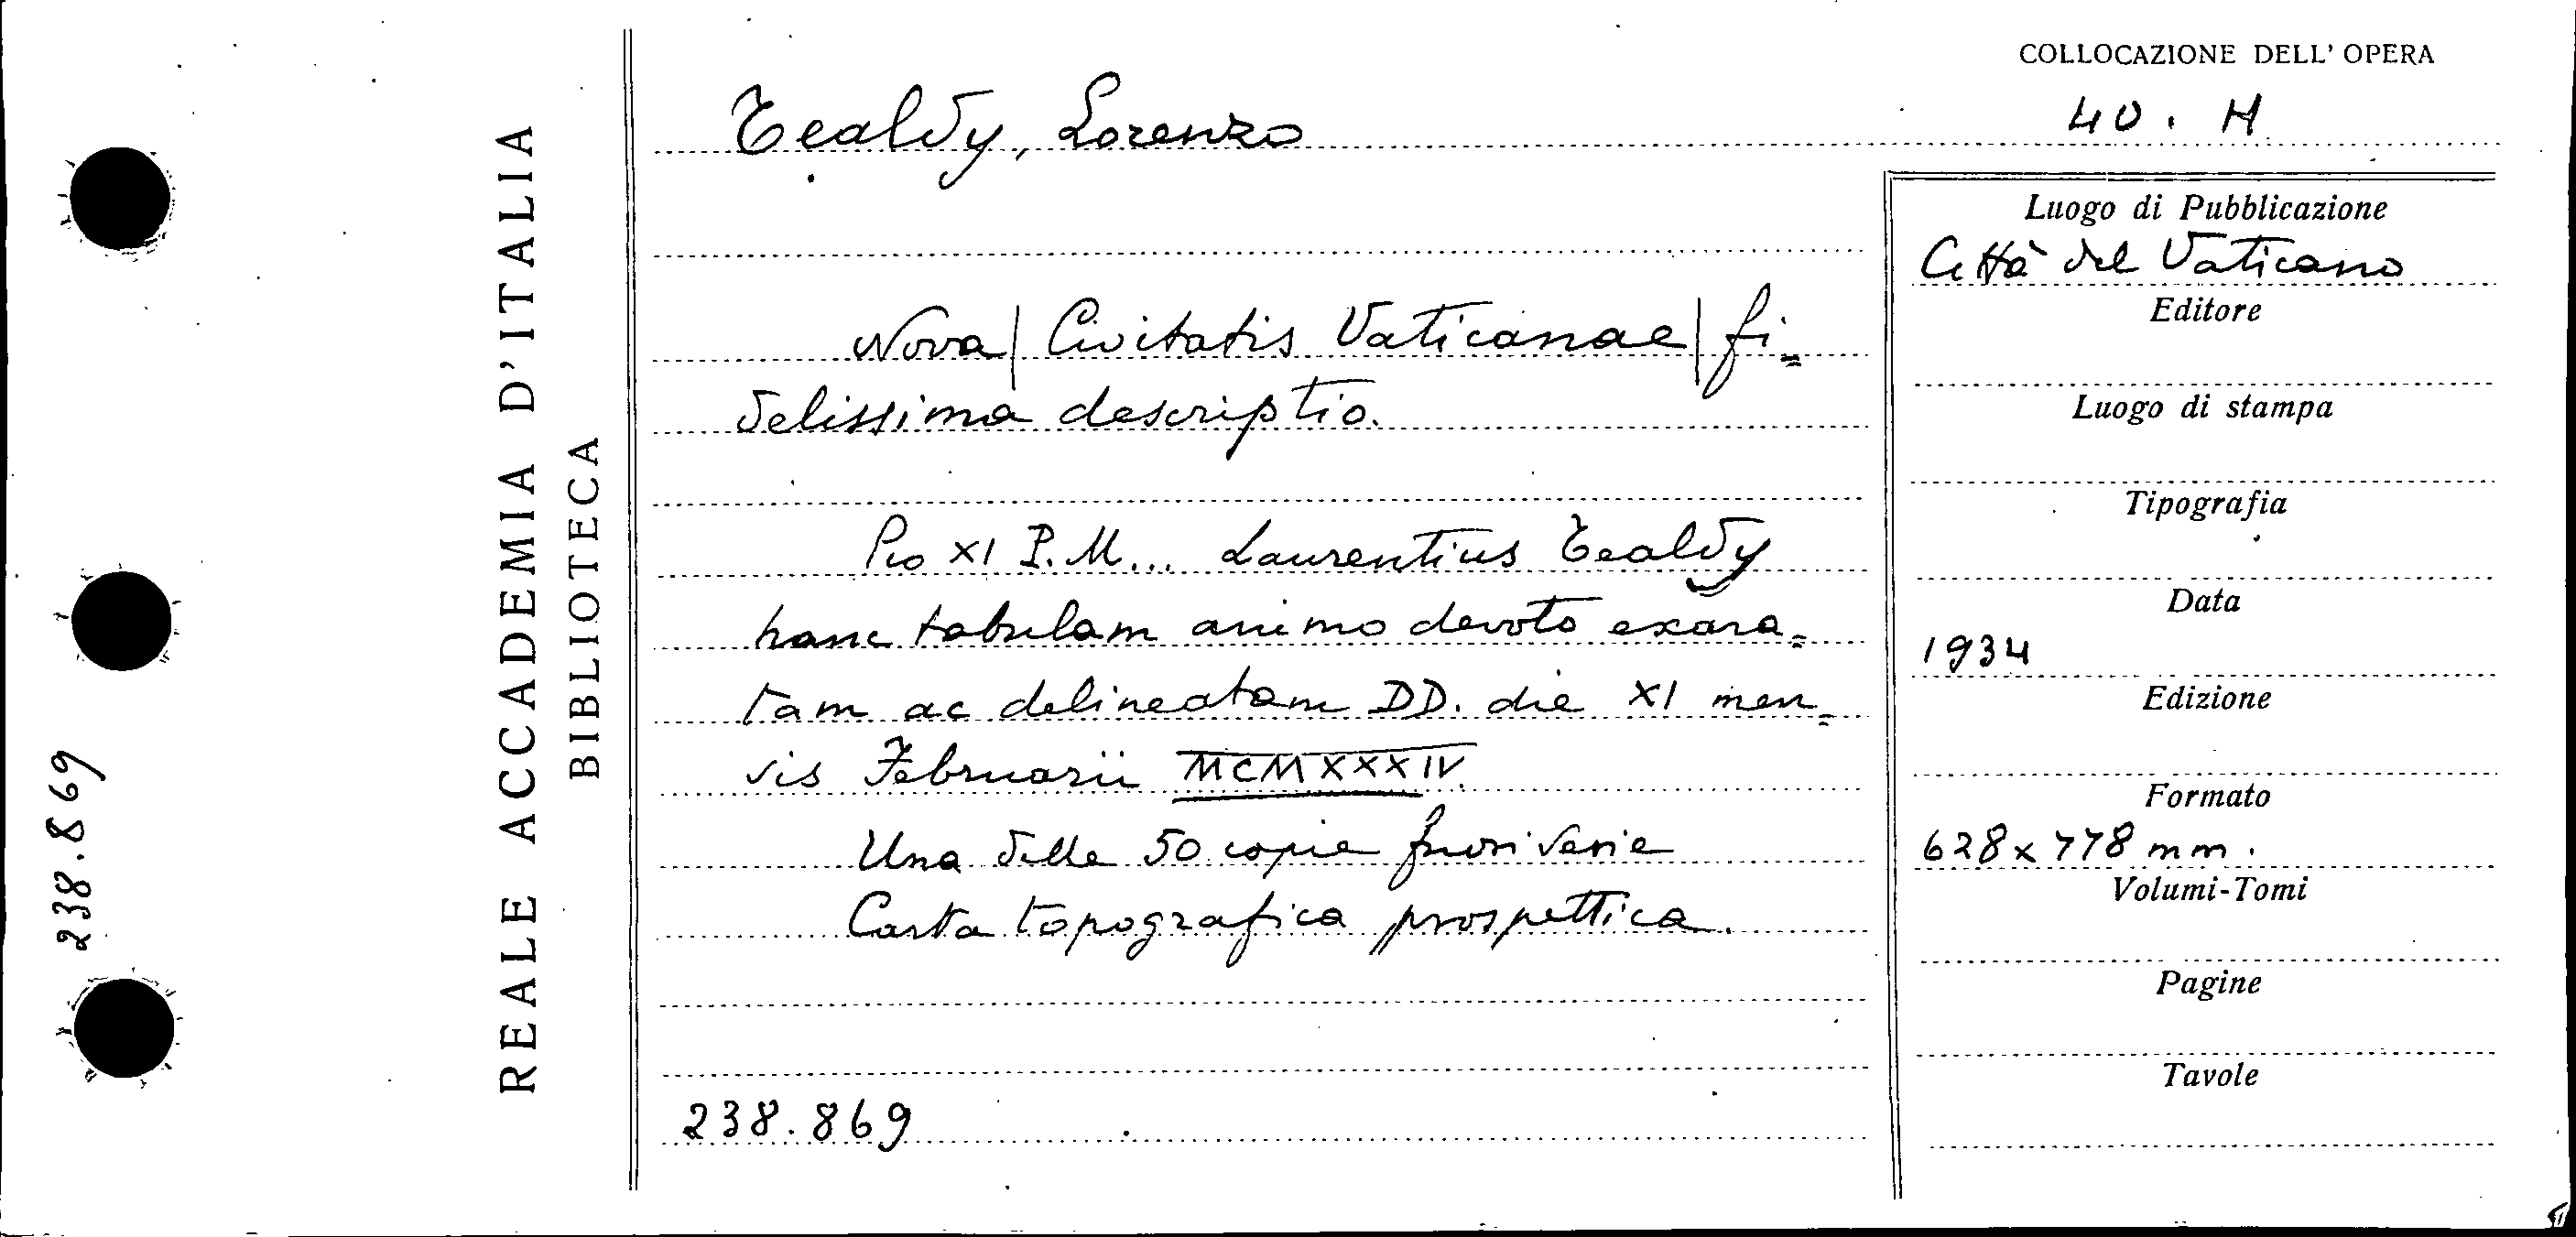 COLLOCAZIONE DELL' OPERA
40. H
Tealdy, Lorenzo
Nova | Civitatis Vaticanae | fi=
delissima descriptio.
Pio XI P. M... Laurentius Tealdy
hanc tabulam animo devoto exara=
tam ac delineatam DD. die XI men=
sis Februarii MCMXXXIV.
Una delle 50 copie fuori serie
Carta topografica prospettica.
238.869
Luogo di Pubblicazione
Città del Vaticano
Editore
Luogo di stampa
Tipografia
Data
1934
Edizione
Formato
628 x 778 mm.
Volumi-Tomi
Pagine
Tavole
REALE ACCADEMIA D'ITALIA
BIBLIOTECA
238.869